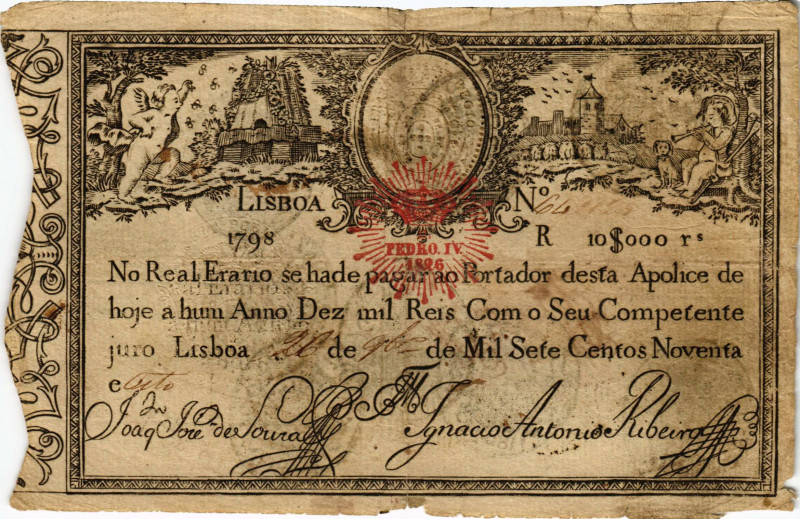 LISBOA Nº
1798 R 10$000 rs
PEDRO. IV.
1826
No Real Erario se hade pagar ao Portador desta Apolice de
hoje a hum Anno Dez mil Reis Com o Seu Competente
juro Lisboa 20 de 9bro de Mil Sete Centos Noventa
e oyto
Joaqm Joze de Souza Ignacio Antonio Ribeiro